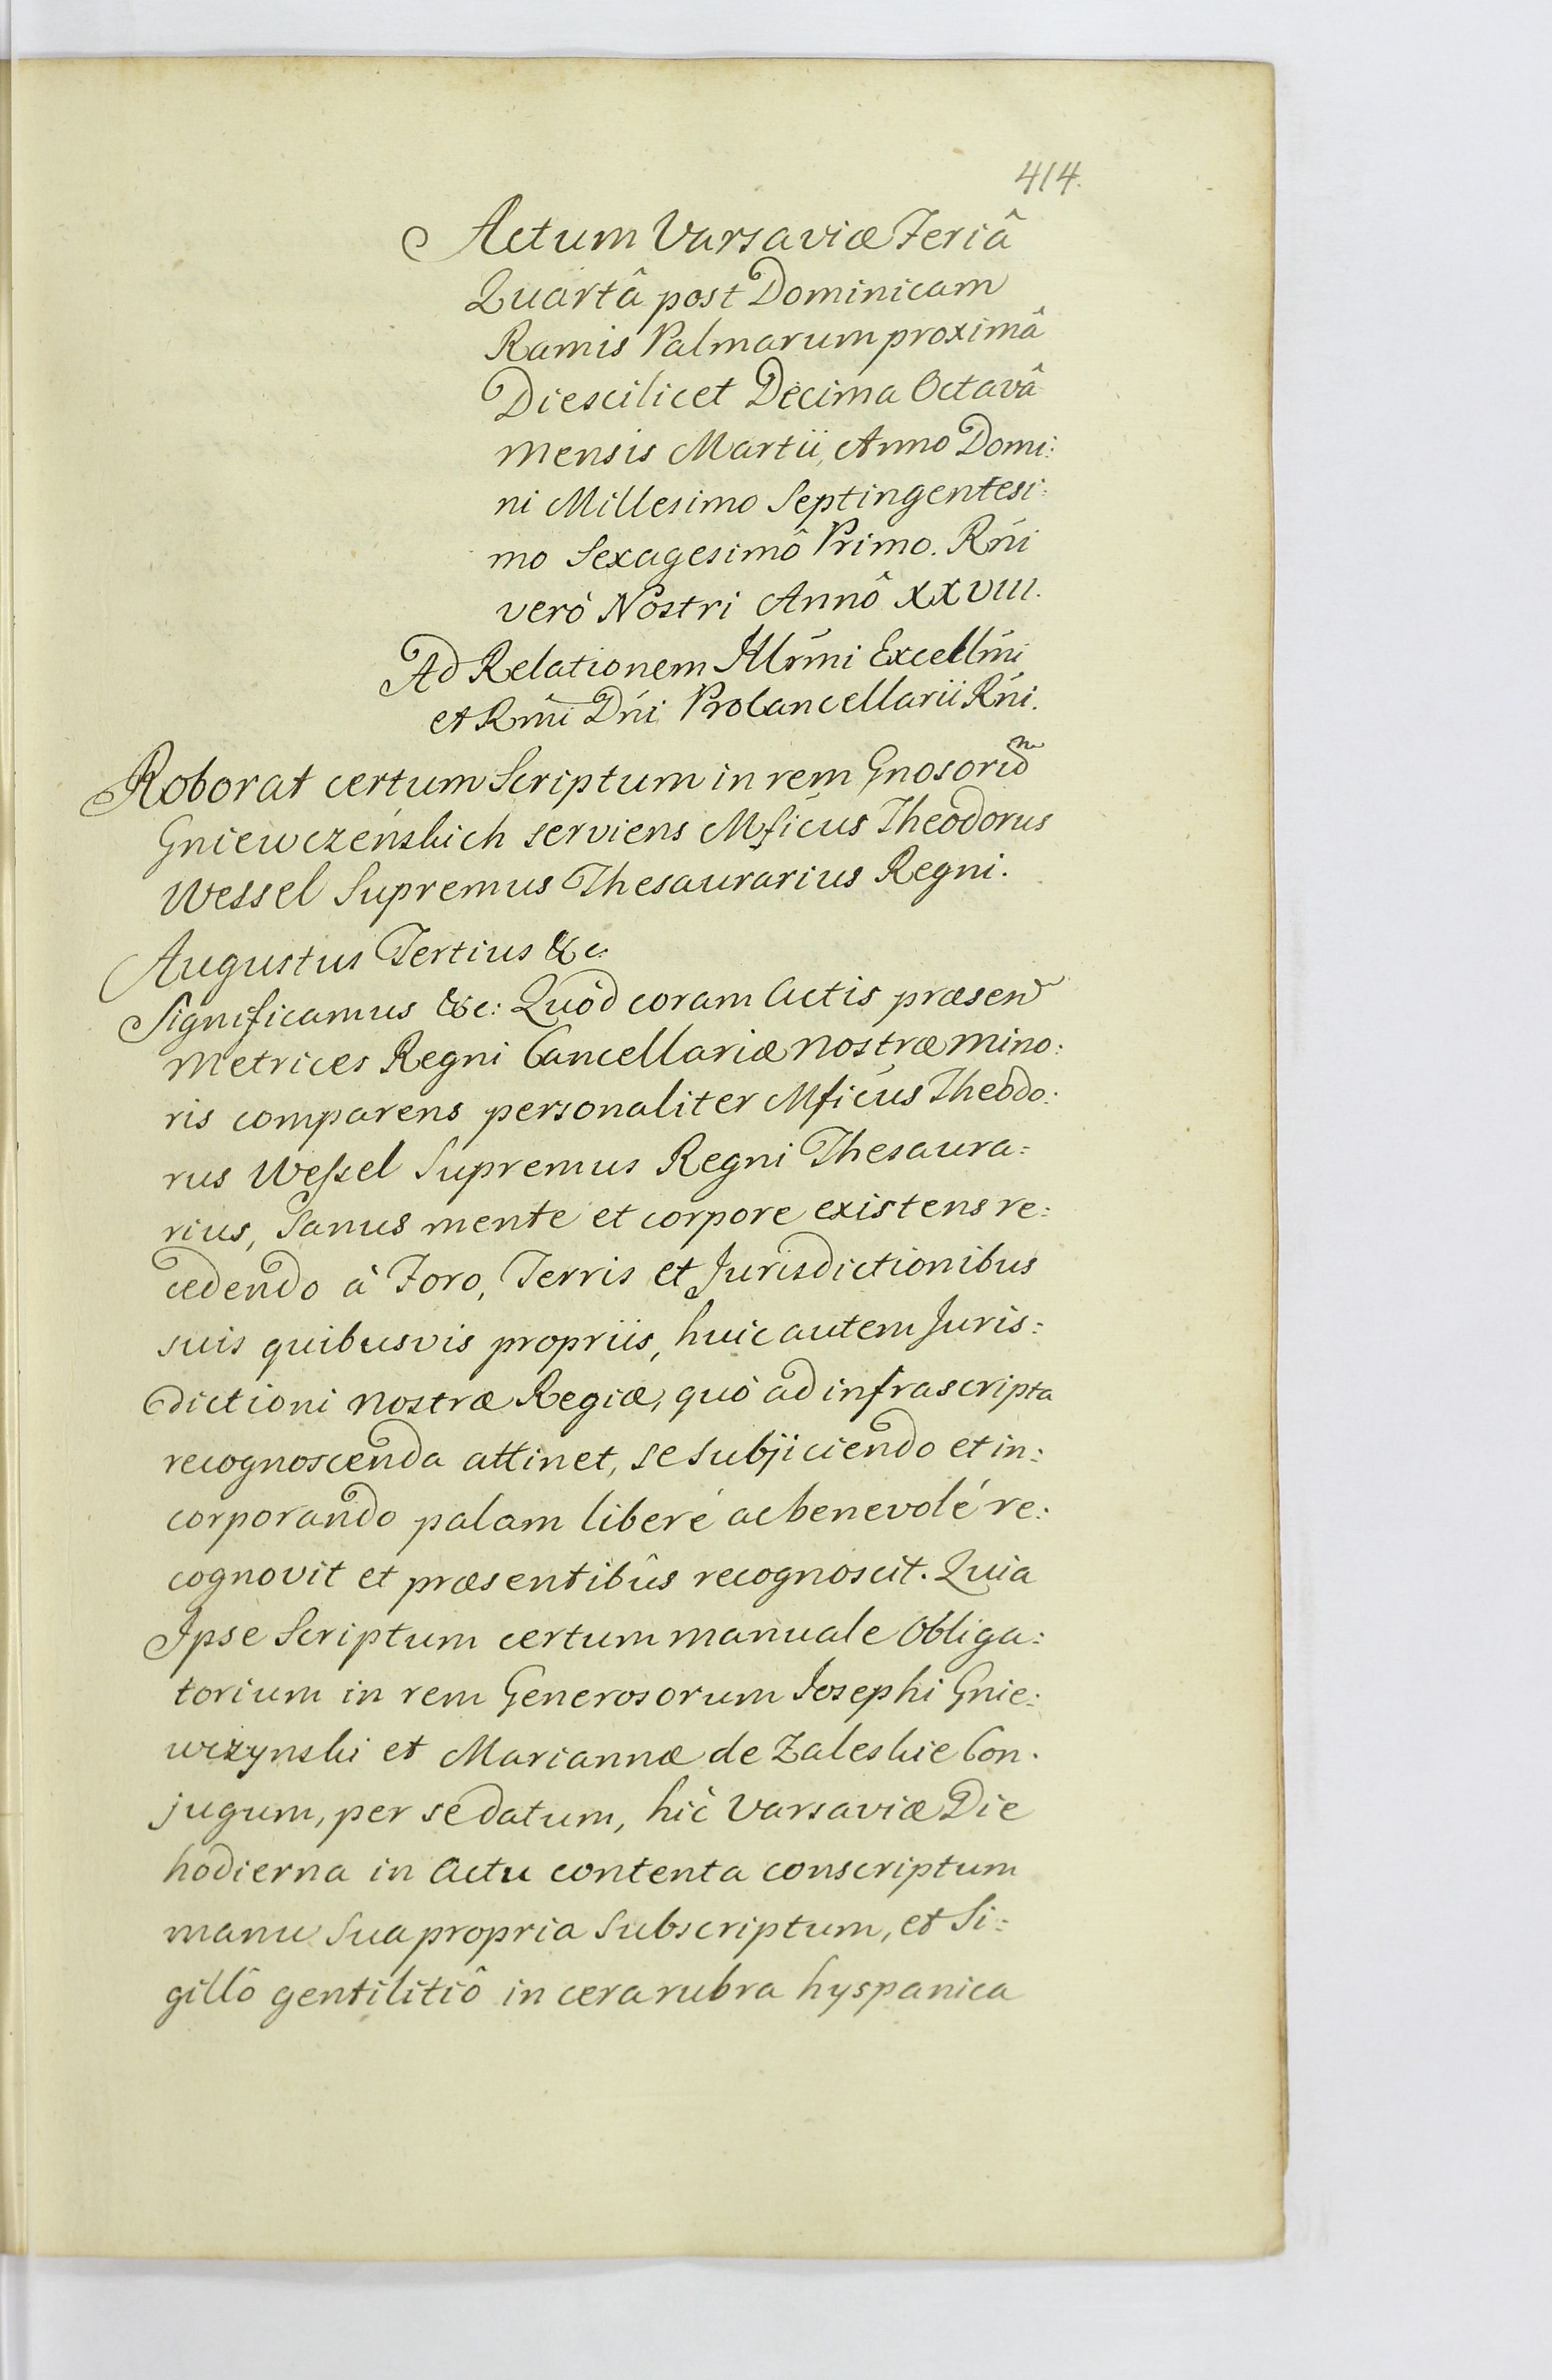 414.
Actum Varsaviæ Feriâ
Quartâ post Dominicam
Ramis Palmarum proximâ
Die scilicet Decima Octavâ
mensis Martii, Anno Domi:
ni Millesimo Septingentesi:
mo Sexagesimô Primo. Rńi
verò Nostri Annô XXVIII.
Ad Relationem Illrḿi Excellḿi
et Rḿi Dńi Procancellarii Rńi.
Roborat certum Scriptum in rem Gnosoru͂
Gniewczeńskich serviens Mficus Theodorus
Wessel Supremus Thesaurarius Regni.
Augustus Tertius &c.
Significamus &c: Quòd coram Actis præsen͂
Metrices Regni Cancellariæ nostræ mino:
ris comparens personaliter Mficus Theodo:
rus Weſsel Supremus Regni Thesaura:
rius, Sanus mente et corpore existens re:
cedendo à Foro, Terris et Jurisdictionibus
suis quibusvis propriis, huic autem Juris:
dictioni nostræ Regiæ, quò ad infrascripta
recognoscenda attinet, se subjiciendo et in:
corporando palam liberé ac benevolé re:
cognovit et præsentibûs recognoscit. Quia
Ipse Scriptum certum manuale Obliga:
torium in rem Generosorum Josephi Gnie:
wczynski et Mariannæ de Zaleskie Con.
jugum, per se datum, hìc Varsaviæ Die
hodierna in Actu contenta conscriptum
manu Sua propria Subscriptum, et Si:
gillô gentilitiô in cera rubra hyspanica